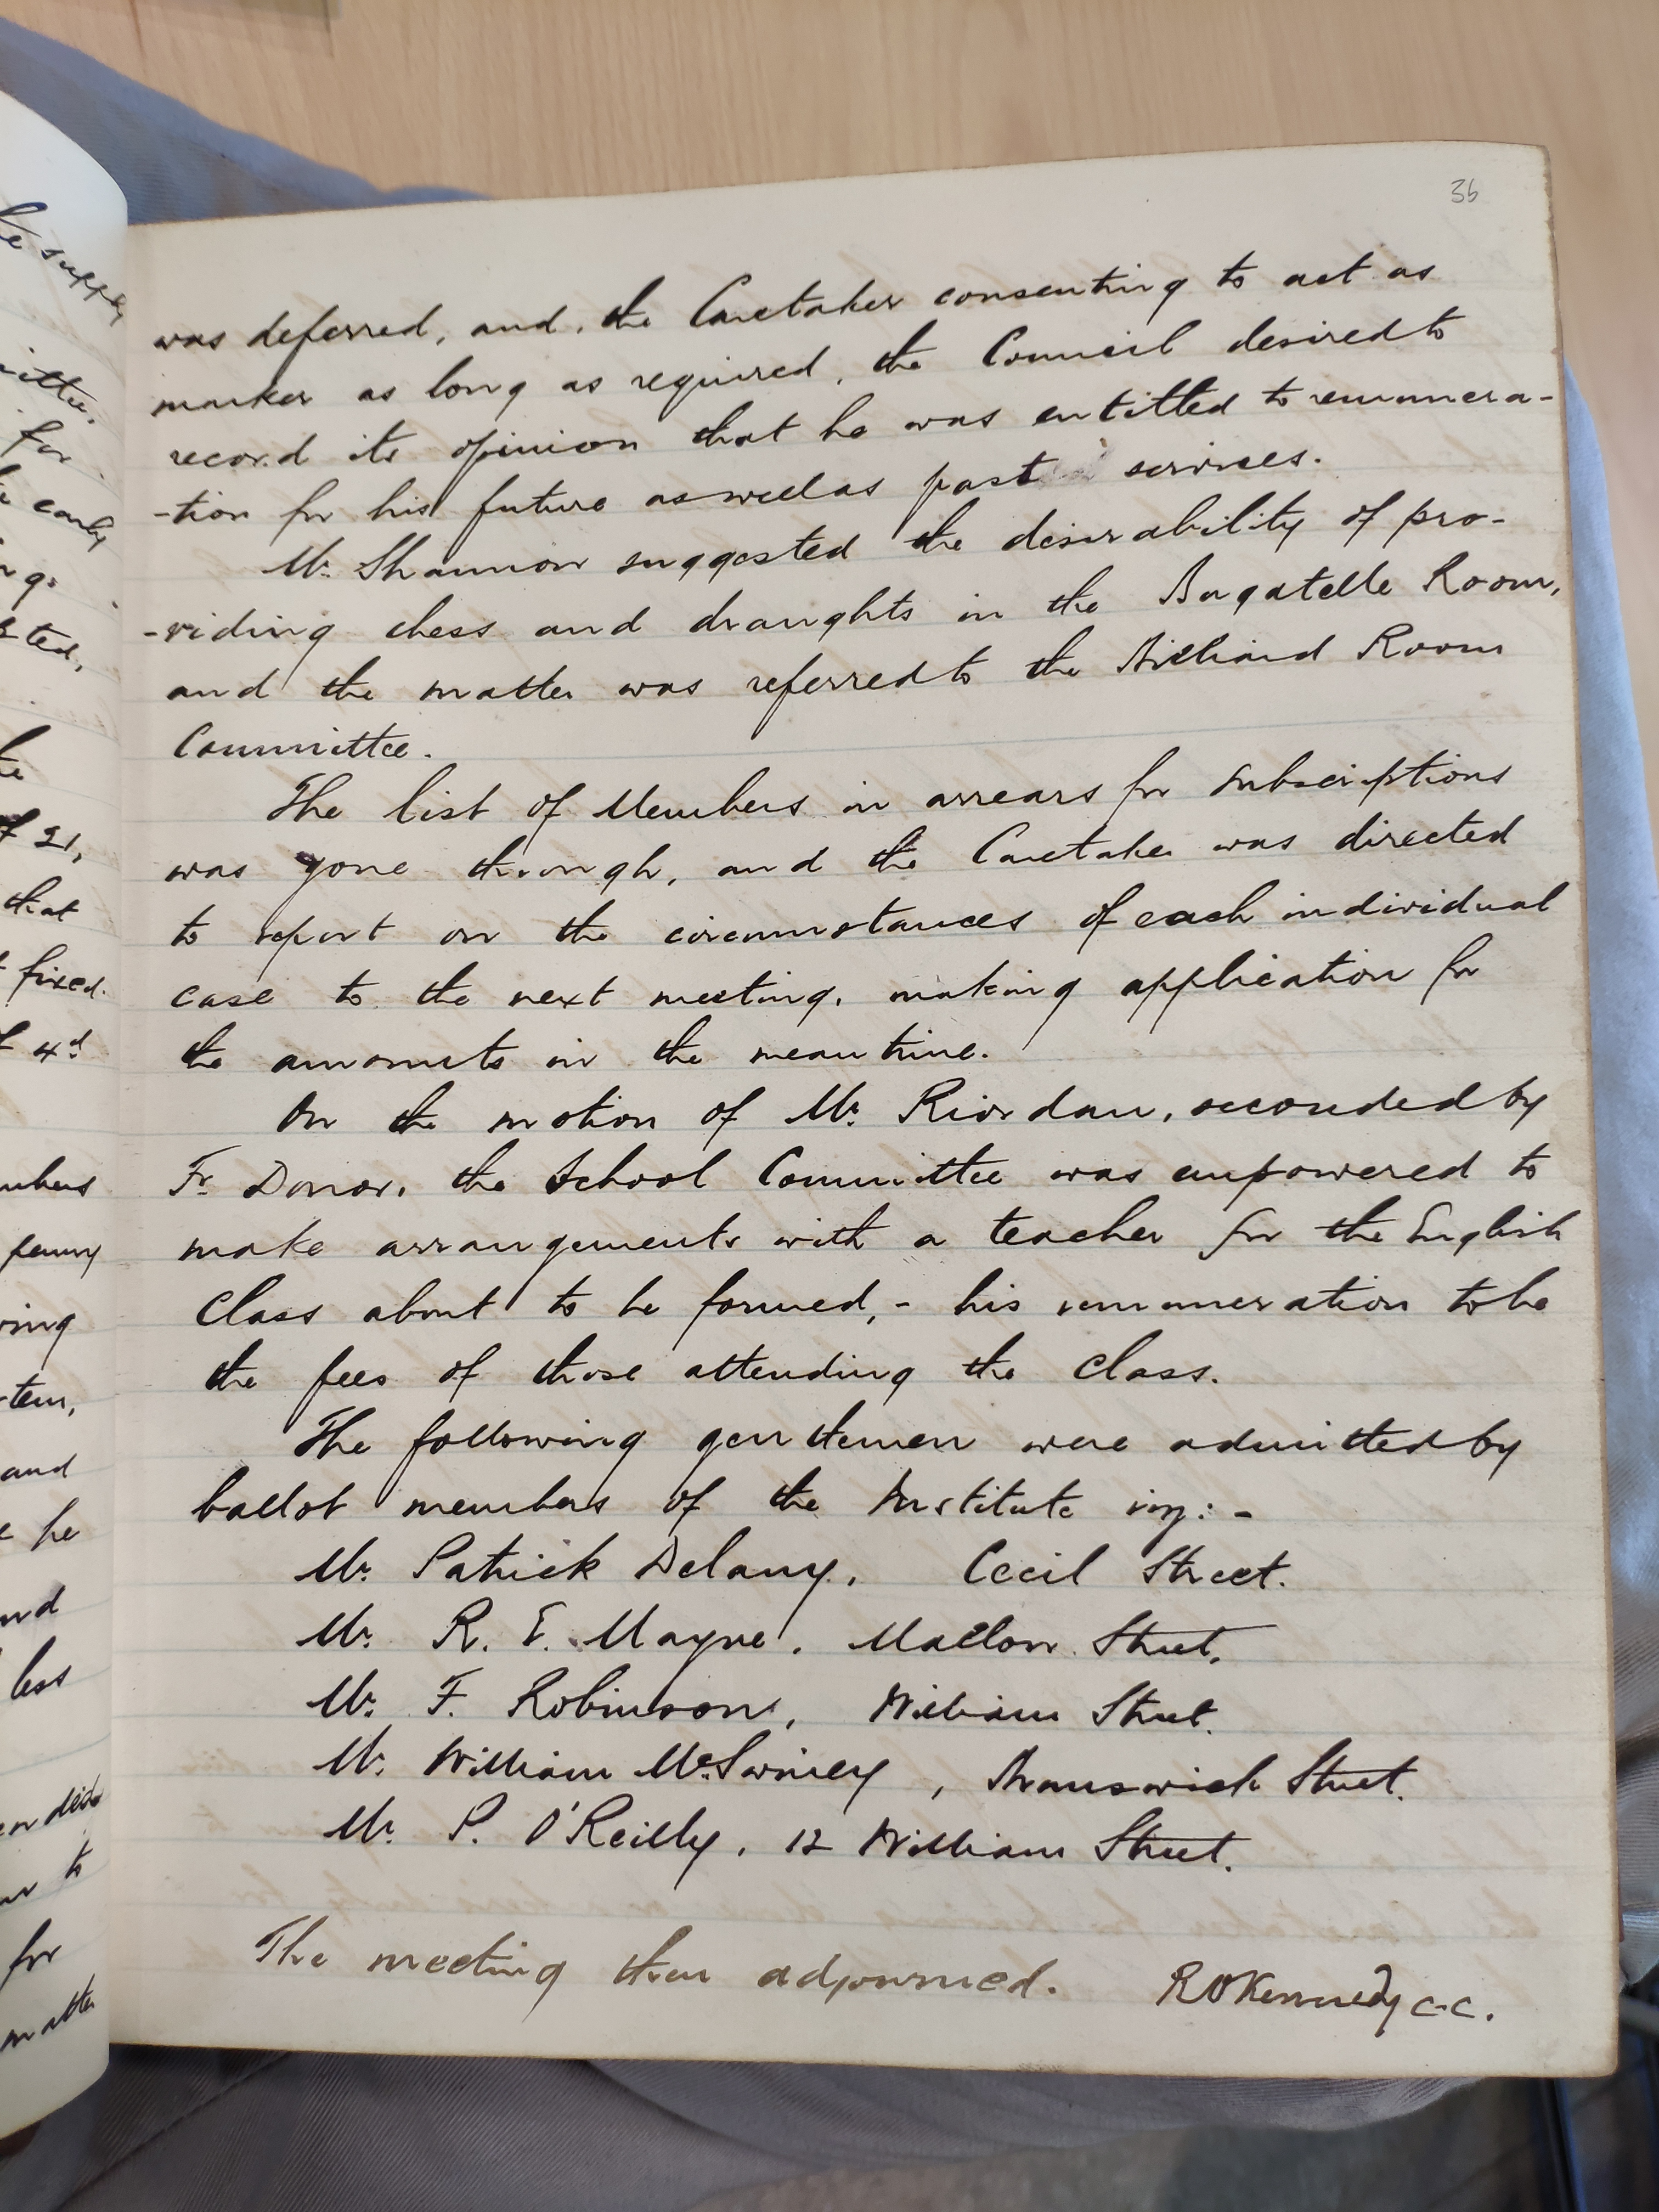 36
was deferred, and, the Caretaker consenting to act as
marker as long as required, the Council desired to
record its opinion that he was entitled to remunera-
-tion for his future as well as past services.
Mr. Shannon suggested the desirability of pro-
-viding chess and draughts in the Bagatelle Room,
and the matter was referred to the Billiard Room
Committee.
The list of Members in arrears for subscriptions
was gone through, and the Caretaker was directed
to report on the circumstances of each individual
case to the next meeting, making application for
the amounts in the meantime.
On the motion of Mr. Riordan, seconded by
Fr. Donor, the School Committee was empowered to
make arrangements with a teacher for the English
Class about to be formed, - his remuneration to be
the fees of those attending the Class.
The following gentlemen were admitted by
ballot members of the Institute viz: -
Mr. Patrick Delany, Cecil Street.
Mr. R. E. Mayne, Mallow Street.
Mr. F. Robinson, William Street.
Mr. William McSwiney, Brunswick Street.
Mr. P. O'Reilly, 12 William Street.
The meeting then adjourned. RO'Kennedy C.C.